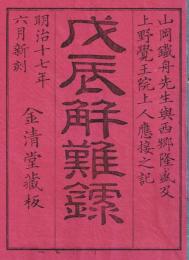 山岡鐵舟先生與西郷隆盛及
上野覺王院上人應接之記
戊辰解難録
明治十七年
六月新刻
金清堂藏板